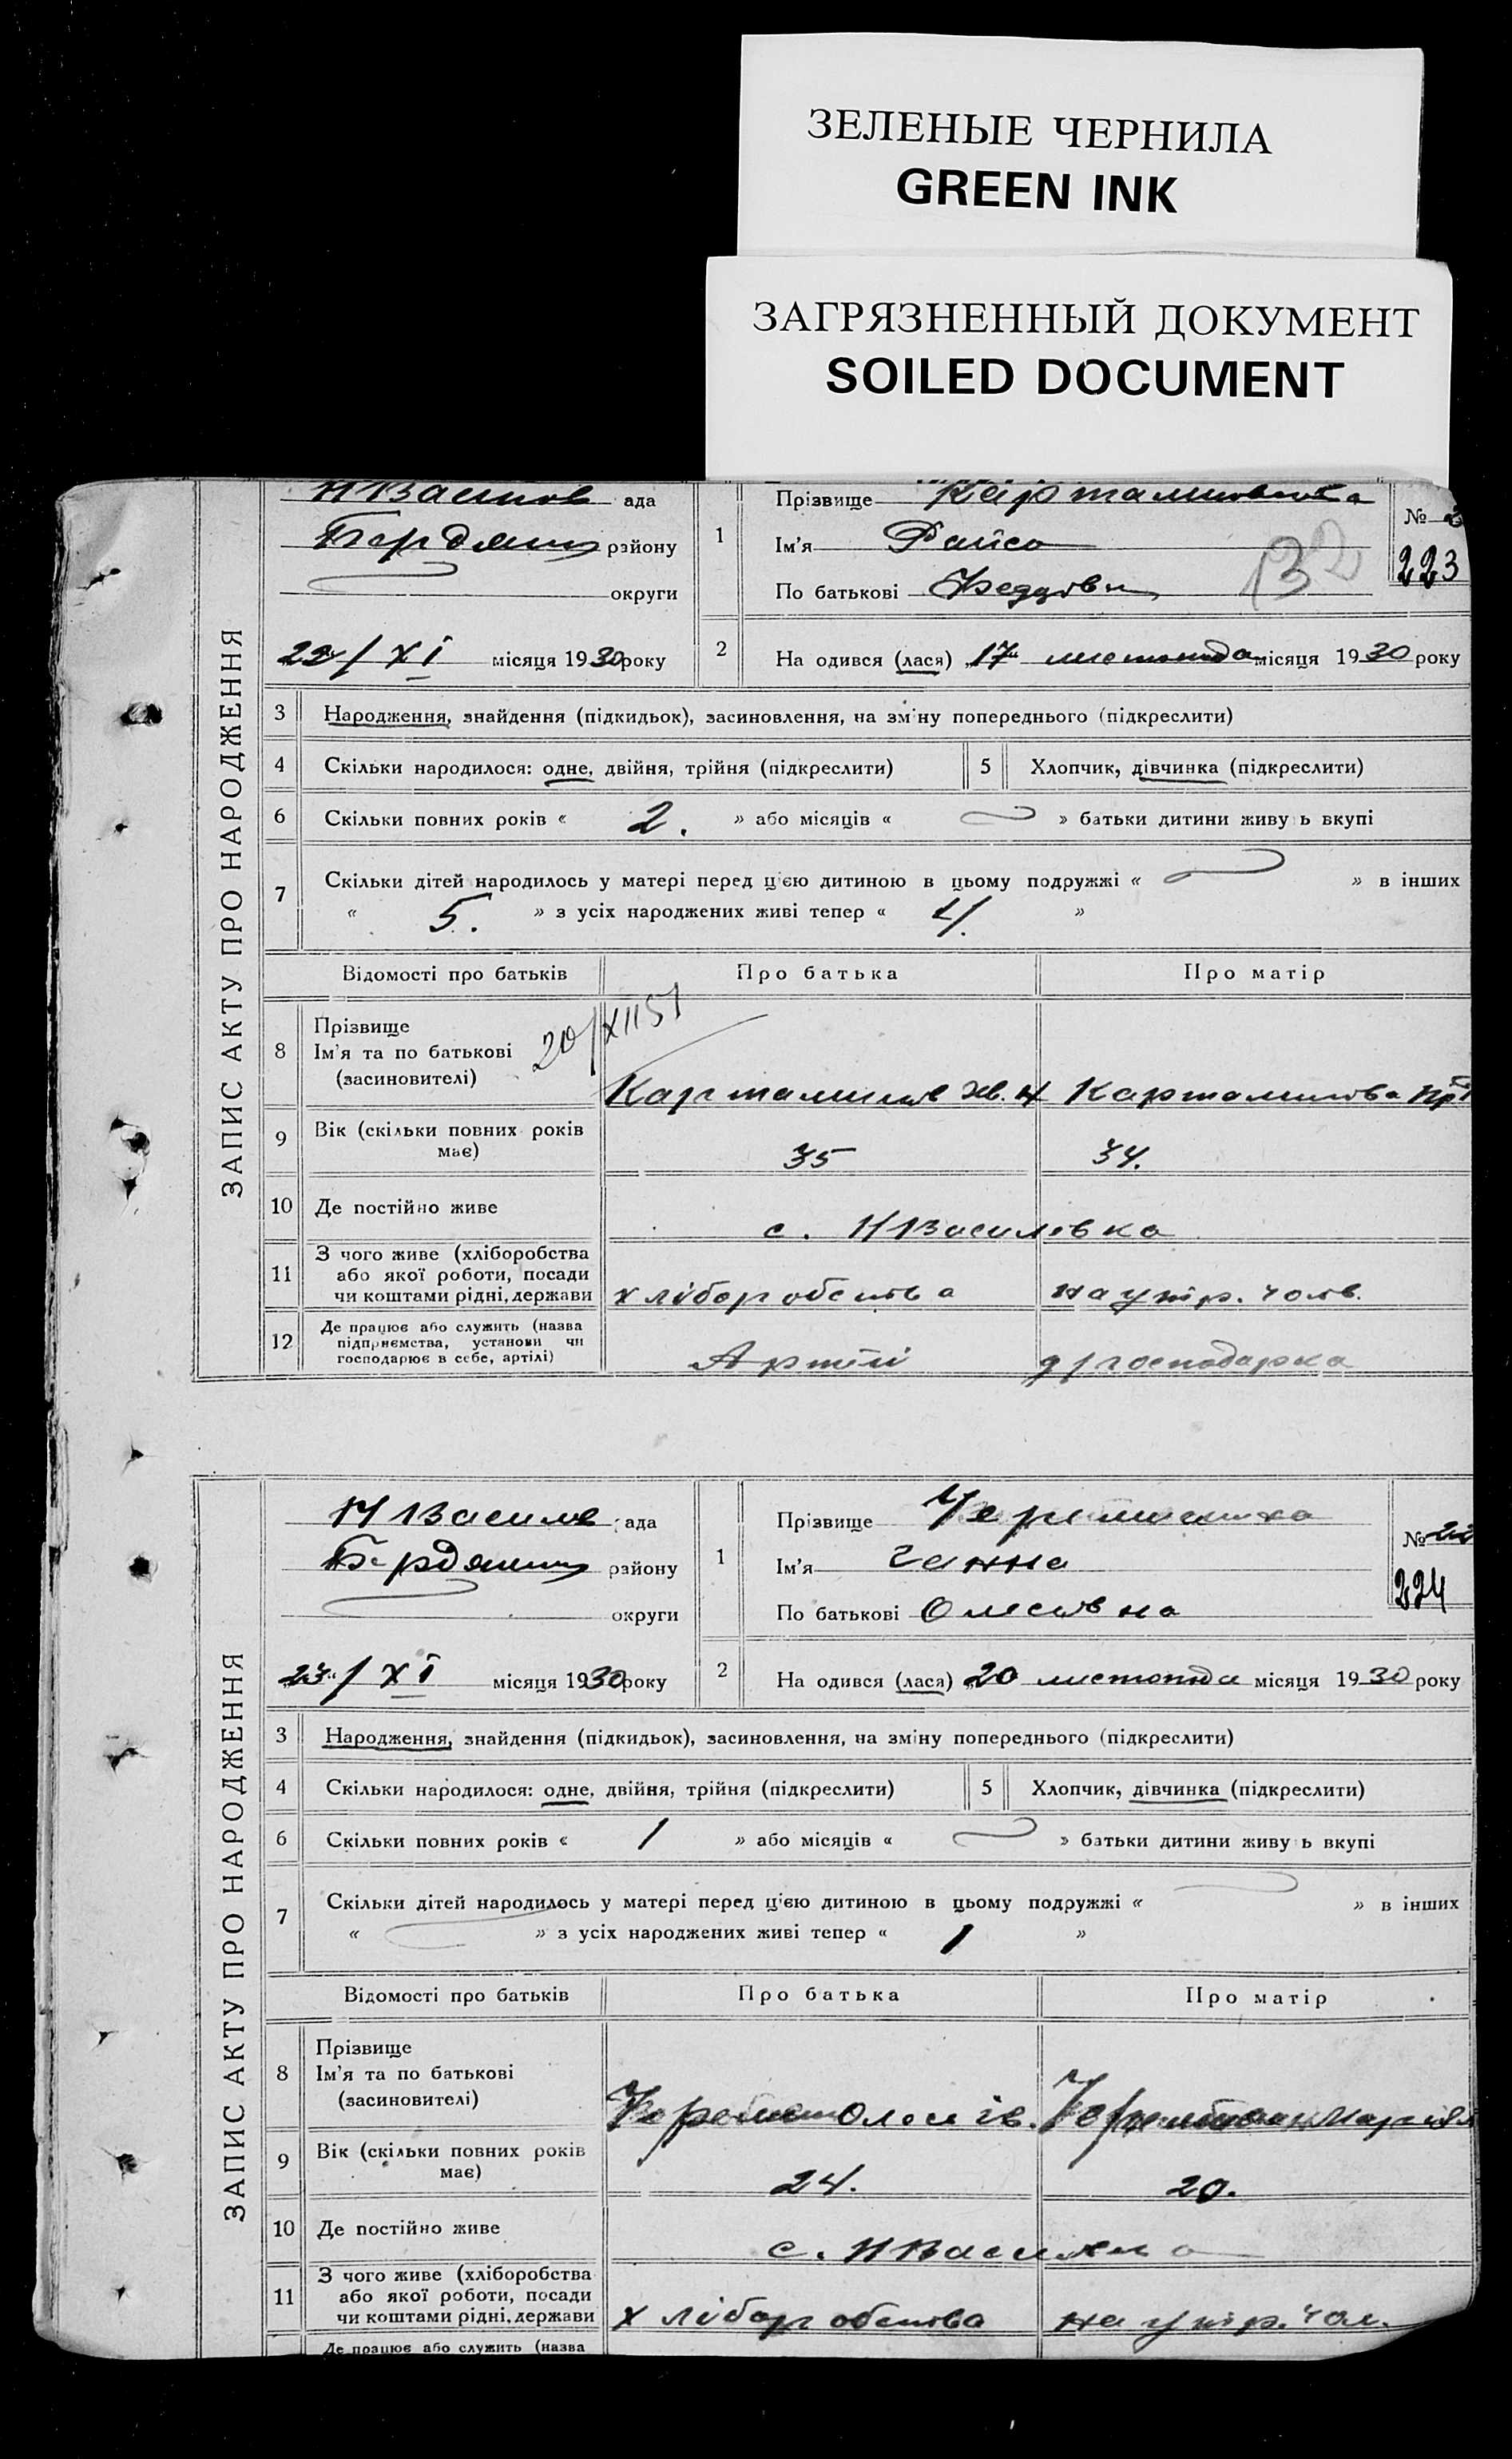 ЗЕЛЕНЫЕ ЧЕРНИЛА
GREEN INK
ЗАГРЯЗНЕННЫЙ ДОКУМЕНТ
SOILED DOCUMENT
ЗАПИС АКТУ ПРО НАРОДЖЕННЯ
ада
району
округи
22/XI місяця 1930 року
1
Прізвище
Ім'я Раиса
По батькові
132
№
223
2
На одився (лася) „17" листопада місяця 1930 року
3 Народження, знайдення (підкидьок), засиновлення, на зм'ну попереднього (підкреслити)
4 Скільки народилося: одне, двійня, трійня (підкреслити) 5 Хлопчик, дівчинка (підкреслити)
6 Скільки повних років « 2. » або місяців « » батьки дитини живу ь вкупі
7 Скільки дітей народилось у матері перед ц'єю дитиною в цьому подружжі « » в інших
« 5. » з усіх народжених живі тепер « 4. »
Відомості про батьків Про батька Про матір
20/XII 51
8 Прізвище
Ім'я та по батькові
(засновителі)
9 Вік (скільки повних років має) 35 34.
10 Де постійно живе с. НВасилівка
11 З чого живе (хліборобства
або якої роботи, посади
чи коштами рідні, держави хліборобства на утр. чолв.
12 Де працює або служить (назва
підприємства, установи чи
господарює в себе, артілі) Артілі д/господарка
ЗАПИС АКТУ ПРО НАРОДЖЕННЯ
Н Василів ада
району
округи
23/XI місяця 1930 року
1
Прізвище
Ім'я Ганна
По батькові
№ 22
224
2
На одився (лася) „20 листопада місяця 1930 року
3 Народження, знайдення (підкидьок), засиновлення, на зміну попереднього (підкреслити)
4 Скільки народилося: одне, двійня, трійня (підкреслити) 5 Хлопчик, дівчинка (підкреслити)
6 Скільки повних років « 1 » або місяців « » батьки дитини живу ь вкупі
7 Скільки дітей народилось у матері перед ц'єю дитиною в цьому подружжі « » в інших
« » з усіх народжених живі тепер « 1 »
Відомості про батьків Про батька Про матір
8 Прізвище
Ім'я та по батькові
(засновителі)
9 Вік (скільки повних років має) 24. 20.
10 Де постійно живе с.
11 З чого живе (хліборобства
або якої роботи, посади
чи коштами рідні, держави хліборобства на утр. чол.
Де працює або служить (назва